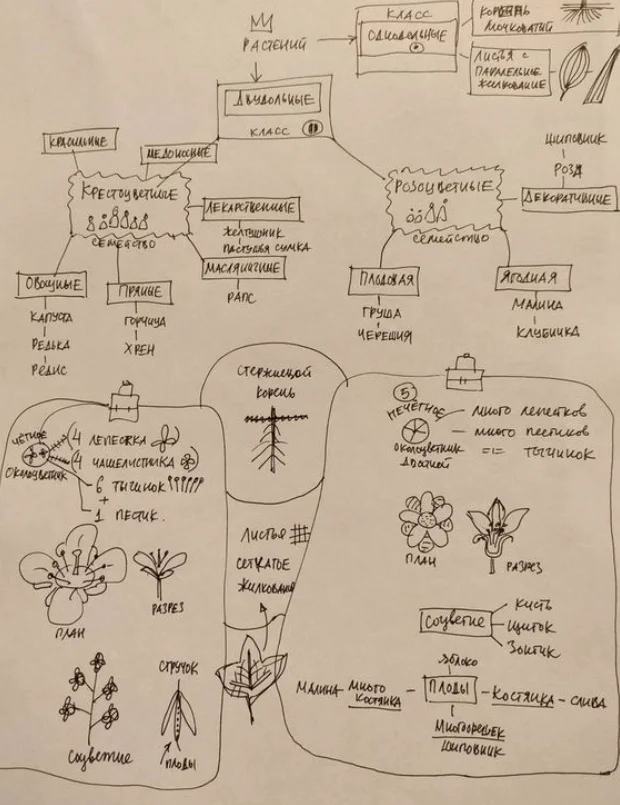 КЛАСС
ОДНОДОЛЬНЫЕ
КОРЕНЬ
МОЧКОВАТЫЙ
ЛИСТЬЯ С
ПАРАЛЕЛЬНОЕ
ЖИЛКОВАНИЕ
РАСТЕНИЙ
ДВУДОЛЬНЫЕ
КЛАСС
КРАСИЛЬНЫЕ
МЕДОНОСНЫЕ
КРЕСТОЦВЕТНЫЕ
СЕМЕЙСТВО
ЛЕКАРСТВЕННЫЕ
ЖЕЛТУШНИК
ПАСТУШЬЯ СУМКА
МАСЛЯНИЧНЫЕ
РАПС
ОВОЩНЫЕ
КАПУСТА
РЕДЬКА
РЕДИС
ПРЯНЫЕ
ГОРЧИЦА
ХРЕН
РОЗОЦВЕТНЫЕ
СЕМЕЙСТВО
ШИПОВНИК
РОЗА
ДЕКОРАТИВНЫЕ
ПЛОДОВАЯ
ГРУША
ЧЕРЕШНЯ
ЯГОДНАЯ
МАЛИНА
КЛУБНИКА
СТЕРЖНЕВОЙ
КОРЕНЬ
ЛИСТЬЯ
СЕТЧАТОЕ
ЖИЛКОВАНИЕ
ЧЁТНОЕ
ОКОЛОЦВЕТНИК
4 ЛЕПЕСТКА
4 ЧАШЕЛИСТНИКА
6 ТЫЧИНОК
+
1 ПЕСТИК.
ПЛАН
РАЗРЕЗ
СОЦВЕТИЕ
СТРУЧОК
ПЛОДЫ
5
НЕЧЁТНОЕ
ОКОЛОЦВЕТНИК
ДВОЙНОЙ
МНОГО ЛЕПЕСТКОВ
МНОГО ПЕСТИКОВ
-॥- ТЫЧИНОК
ПЛАН
РАЗРЕЗ
СОЦВЕТИЕ
КИСТЬ
ЩИТОК
ЗОНТИК
ЯБЛОКО
МАЛИНА - МНОГО
КОСТЯНКА
ПЛОДЫ
КОСТЯНКА - СЛИВА
МНОГООРЕШЕК
ШИПОВНИК